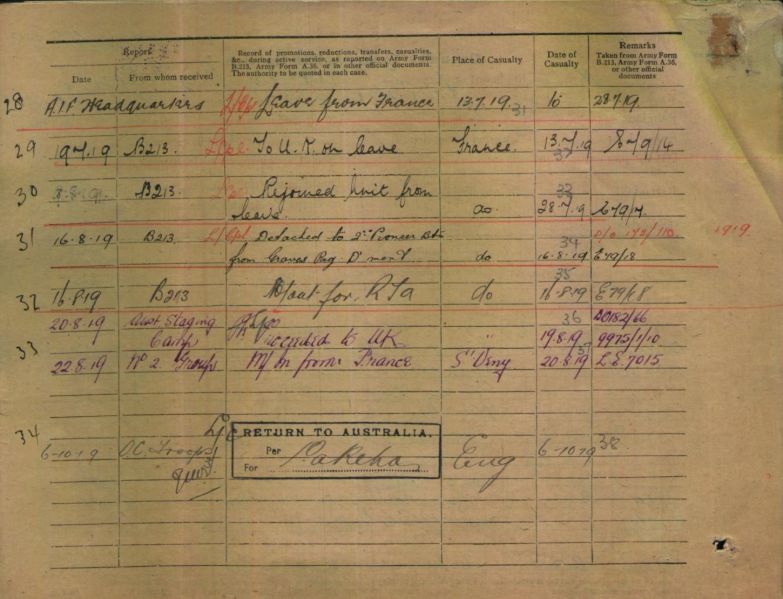 Report
Date
From whom received
Record of promotions, reductions, transfers, casualties, &c., during active service, as reported on Army Form B.213, Army Form A.36, or in other official documents. The authority to be quoted in each case.
Place of Casualty
Date of Casualty
Remarks
Taken from Army Form B.213, Army Form A.36, or other official documents
28 A.I.F Headquarters L/Cpl Leave from France 13.7.19 31 to 28.7.19
29 19.7.19 B213. L/Cpl To U.K. on leave France. 13.7.19 32 E79/14
30 8.8.19 B213 L/Cpl Rejoined Unit from 33
leave. do. 28.7.19 E79/17
31 16-8-19 B213 L/Cpl Detached to 2nd Pioneer Btn 34 D/O 172/110 1919
from Graves Reg. D'ment do 16-8-19 E79/18
35
32 16.8.19 B213 for R.T.A do 16.8.19 E79/18
20.8.19 Aust Staging 36 D0182/66
Camp proceeded to UK " 19.8.19 9975/1/10
33 22.8.19 No 2. Group M/In from France S'Deny 20.8.19 37 L.E. 7015
34 L/C RETURN TO AUSTRALIA.
6-10-19 O.C. Troops Per Pakeha Eng 6-10-19 38
For